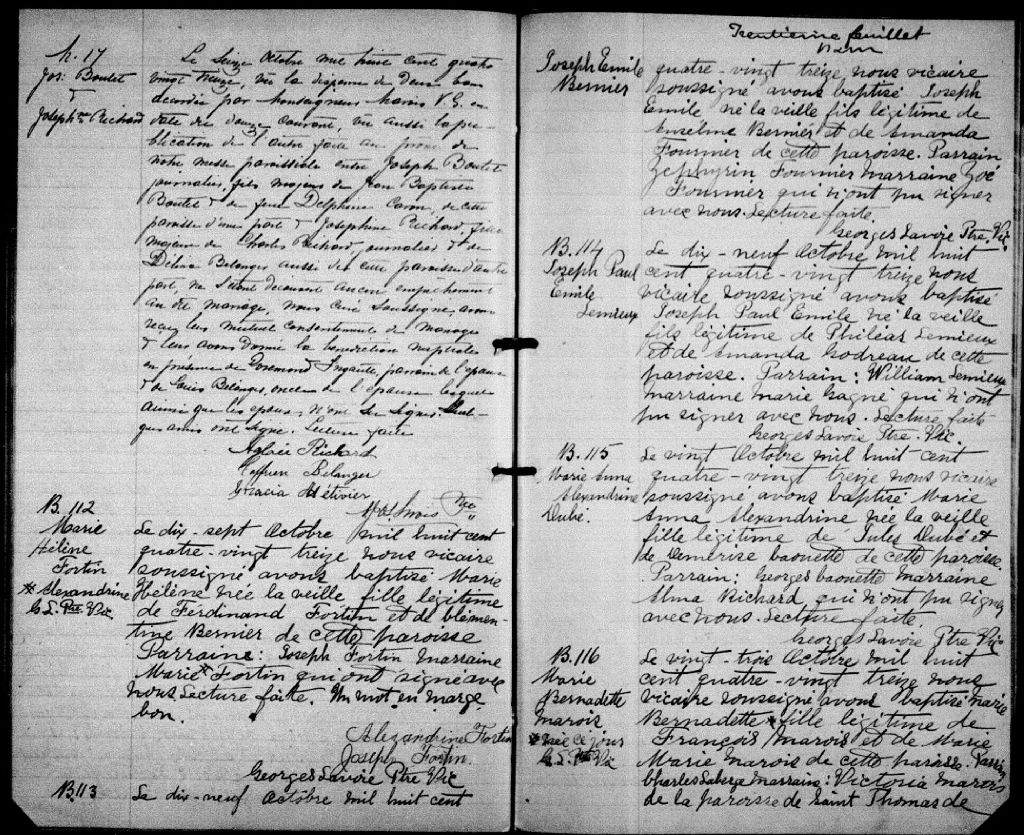 M. 17
Jos: Boulet
&
Joseph.ne Richard
Le Seize Octobre mil huit cent quatre
vingt treize, vu la dispense de deux bans
accordée par Monseigneur Marois V.G. en
date du douze courant, vu aussi la pu-
blication de l'autre faite au prone de
notre messe paroissiale entre Joseph Boulet
journalier, fils majeur de Jean Baptiste
Boulet & de feue Delphine Caron, de cette
paroisse d'une part & Josephine Richard, fille
majeure de Charles Richard, journalier & de
Délina Belanger aussi de cette paroisse d'autre
part, ne s'étant découvert aucun empêchement
au dit mariage, nous curé soussigné avons
reçu leur mutuel consentement de mariage
& leur avons donné la bénédiction nuptiale
en présence de parrain de l'épouse
& de Louis Belanger, oncle de l'épouse lesquels
ainsi que les époux n'ont su signer. Quel-
ques amis ont signé. Lecture faite
Aglaée Richard
Belanger
Gracia Métivier
B. 112
Marie
Hélène
Fortin
* Alexandrine
G. L. Ptre Vic
Le dix-sept Octobre mil huit cent
quatre-vingt treize nous vicaire
soussigné avons baptisé Marie
Hélène née la veille fille légitime
de Ferdinand Fortin et de Clémen-
tine Bernier de cette paroisse
Parraine: Joseph Fortin marraine
Marie * Fortin qui ont signé avec
nous Lecture faite. Un mot en marge
bon.
Alexandrine Fortin
Joseph Fortin
Georges Lavoie Ptre Vic
B. 113
Le dix-neuf Octobre mil huit cent
Trentième feuillet
Joseph Emile
Bernier
quatre-vingt treize nous vicaire
soussigné avons baptisé Joseph
Emile né la veille fils légitime de
Anselme Bernier et de Amanda
Fournier de cette paroisse. Parrain
Zephyrin Fournier marraine Zoé
Fournier qui n'ont pu signer
avec nous. Lecture faite.
Georges Lavoie Ptre. Vic.
B. 114
Joseph Paul
Emile
Lemieux
Le dix-neuf Octobre mil huit
cent quatre-vingt treize nous
vicaire soussigné avons baptisé
Joseph Paul Emile né la veille
fils légitime de Philéas Lemieux
et de Amanda Nodreau de cette
paroisse. Parrain: William Lemieux
marraine Marie Gagné qui n'ont
pu signer avec nous. Lecture faite
Georges Lavoie Ptre. Vic.
B. 115
Marie Anna
Alexandrine
Dubé.
Le vingt Octobre mil huit cent
quatre-vingt treize nous vicaire
soussigné avons baptisé Marie
Anna Alexandrine née la veille
fille légitime de Jules Dubé et
de Demerise Caouette de cette paroisse
Parrain: Georges Caouette marraine
Alma Richard qui n'ont pu signer
avec nous. Lecture faite.
Georges Lavoie Ptre Vic
B. 116
Marie
Bernadette
Marois
* née ce jour
G. L. Ptre Vic
Le vingt-trois Octobre mil huit
cent quatre-vingt treize nous
vicaire soussigné avons baptisé Marie
Bernadette * fille légitime de
François Marois et de Marie
Marie Marois de cette paroisse. Parrain
Charles Laberge marraine: Victoria Marois
de la paroisse de Saint Thomas de